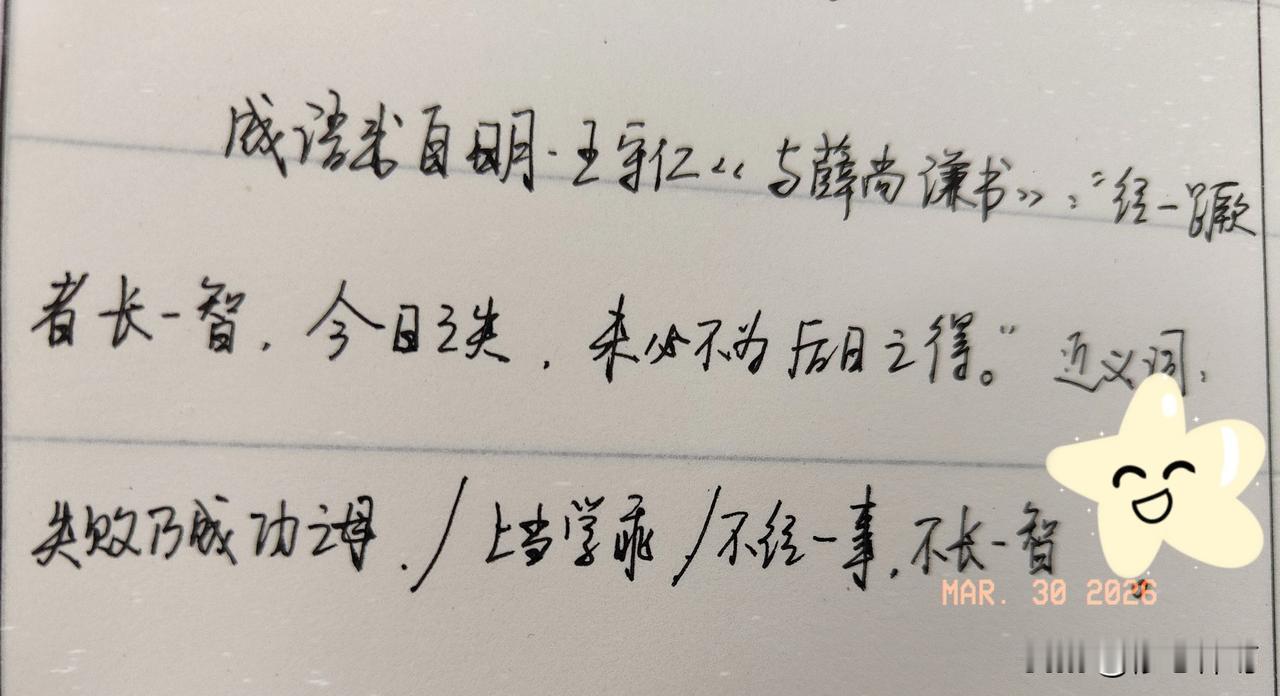 成语来自明·王守仁《与薛尚谦书》:"经一蹶
者长一智,今日之失,未必不为后日之得。"近义词:
失败乃成功之母./上当学乖/不经一事,不长一智
MAR. 30 2026